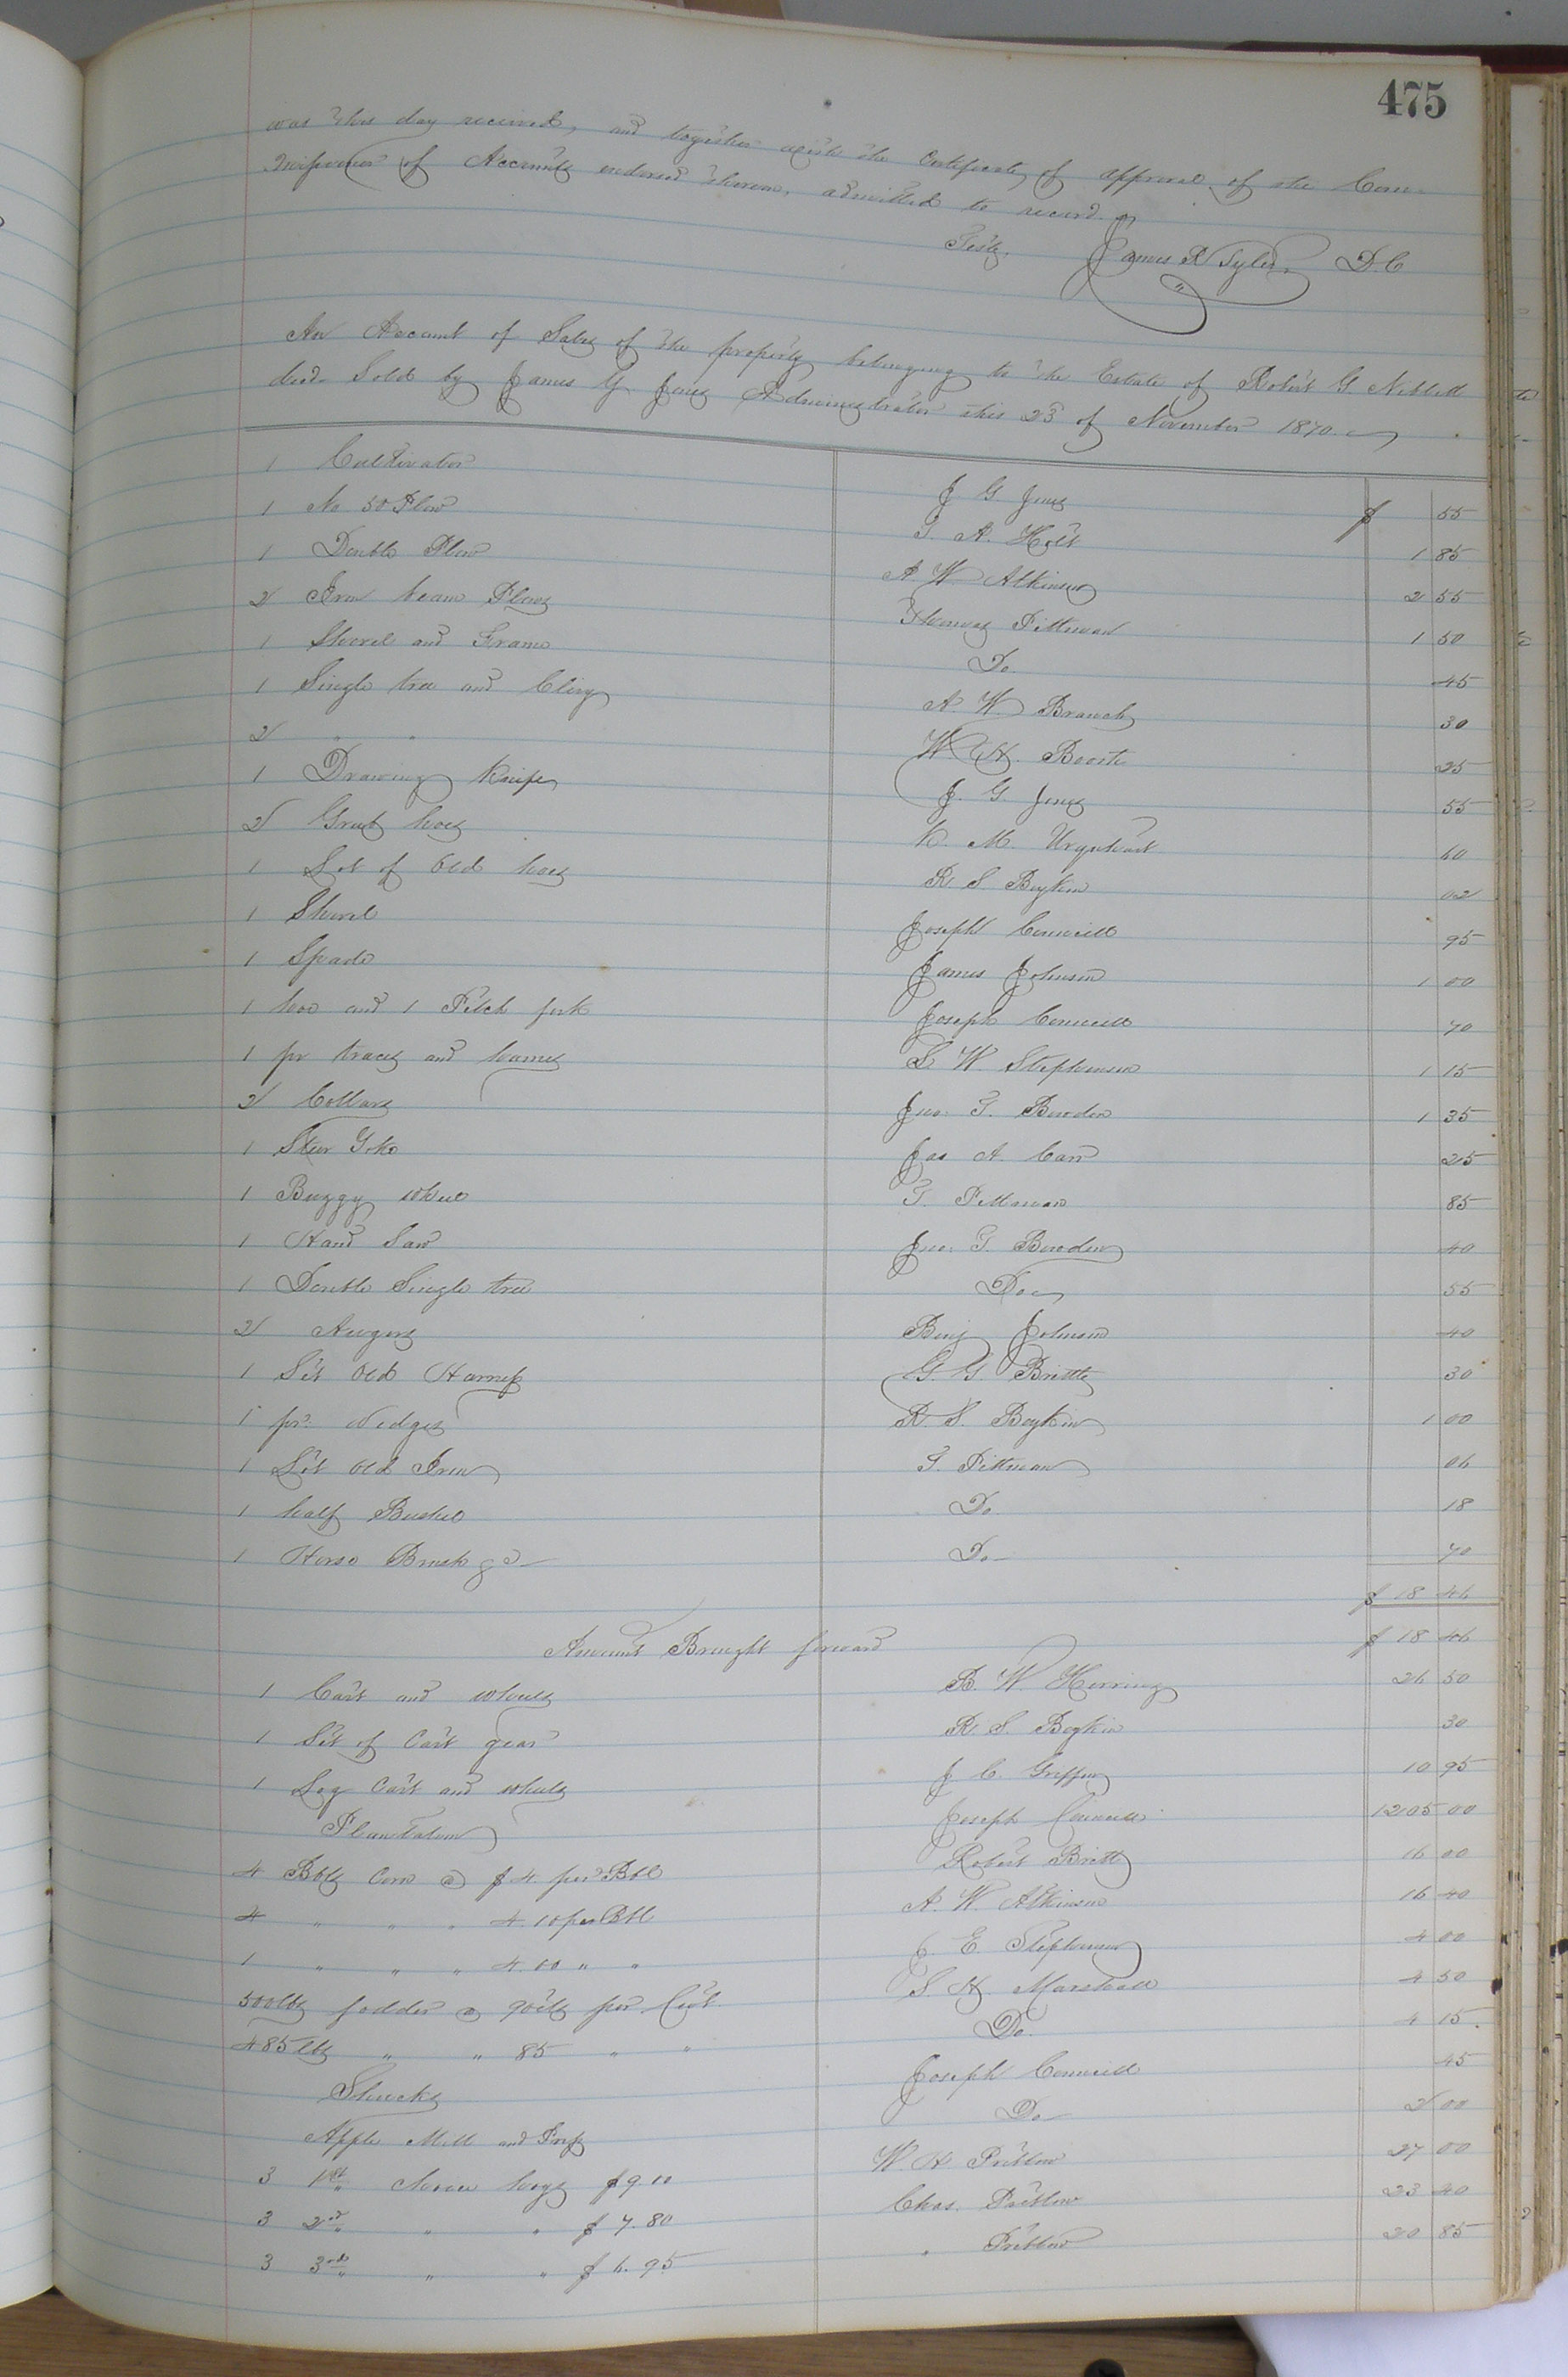 475
was this day received, and together with the Certificate of approval of the Com-
missioner of Accounts endorsed thereon, admitted to record.
Teste, James R Tyler, D.C
An Account of Sales of the property belonging to the Estate of Robert G. Niblett
decd. Sold by James G. Jones Administrator this 23d of November 1870.
1 Cultivator J G Jones $ 55
1 No 50 Plow T. A. Holt 1 85
1 Double Plow A W Atkinson 2 55
2 Iron beam Plows Thomas Pittman 1 50
1 Shovel and Frame Do. 45
1 Single tree and Clevy A. W. Branch 30
2 " " W. H. Booth 25
1 Drawing Knife J. G. Jones 55
2 Grub hoes K. M. Urquhart 60
1 Lot of Old hoes R S Boykin 02
1 Shovel Joseph Councill 95
1 Spade James Johnson 1 00
1 hoe and 1 Pitch fork Joseph Councill 70
1 pr traces and hames S W Stephenson 1 15
2 Collars Jno. T. Bowden 1 35
1 Steer Yoke Jas A. Carr 25
1 Buggy wheel T. Pittman 85
1 Hand Saw Jno. T. Bowden 40
1 Double Single tree Do 55
2 Augers Benj Johnson 40
1 Set Old Harness G. G. Britt 30
1 pr. Wedges R. S. Boykin 1 00
1 Lot Old Iron T. Pittman 06
1 half Bushel Do. 18
1 Horse Brush &c Do 70
$ 18 46
Amount Brought forward $ 18 46
1 Cart and wheels B. W. Herring 26 50
1 Set of Cart gear R. S. Boykin 30
1 Log Cart and wheels J. C. Griffin 10 95
Plantation Joseph Councill 1205 00
4 Bbls Corn @ $4. per Bbl Robert Britt 16 00
4 " " " 4.10 per Bbl A. W. Atkinson 16 40
1 " " " 4.00 " " E. Stephenson 4 00
500 lbs fodder @ 90cts per Cwt S. H. Marshall 4 50
485 lbs " " 85 " " Do. 4 15
Shucks Joseph Councill 45
Apple Mill and Press Do 2 00
3 1st choice hogs $9.00 W. H Pretlow 27 00
3 2nd " " $7.80 Chas. Pretlow 23 40
3 3rd " " $6.95 " Pretlow 20 85